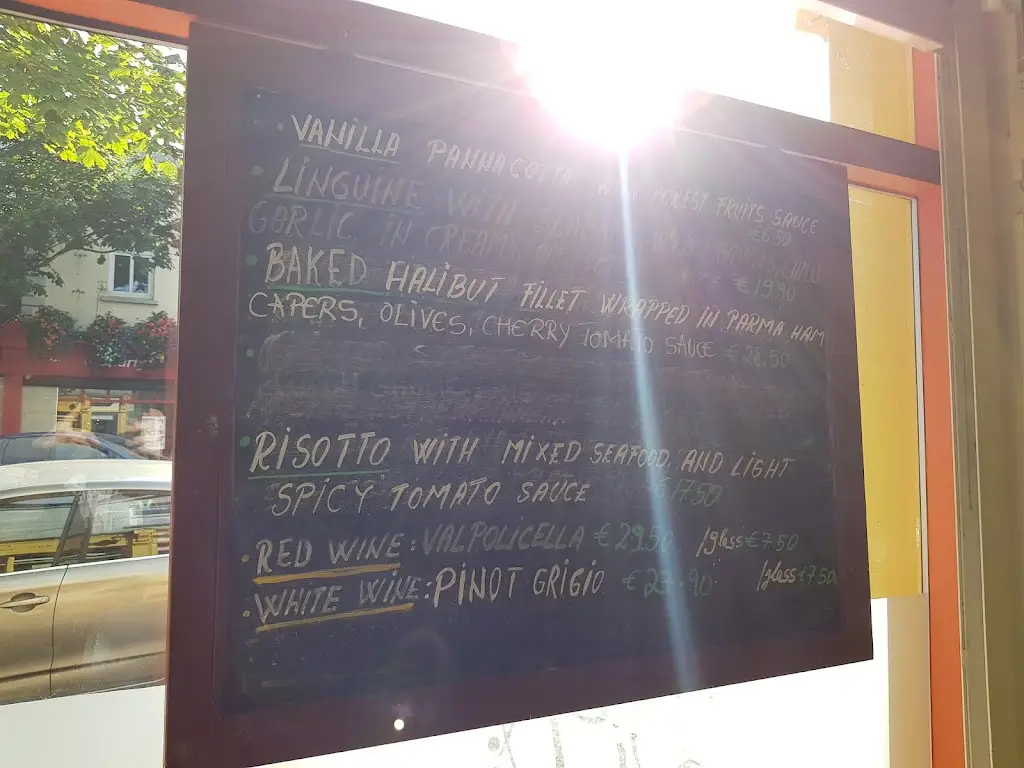 VANILLA PANNACOTTA WITH FOREST FRUITS SAUCE
€6.50
LINGUINE WITH
GARLIC IN CREAMY
€19.90
BAKED HALIBUT FILLET WRAPPED IN PARMA HAM
CAPERS, OLIVES, CHERRY TOMATO SAUCE €28.50
RISOTTO WITH MIXED SEAFOOD AND LIGHT
SPICY TOMATO SAUCE €17.50
RED WINE: VALPOLICELLA €29.50 /glass €7.50
WHITE WINE: PINOT GRIGIO /glass €7.50